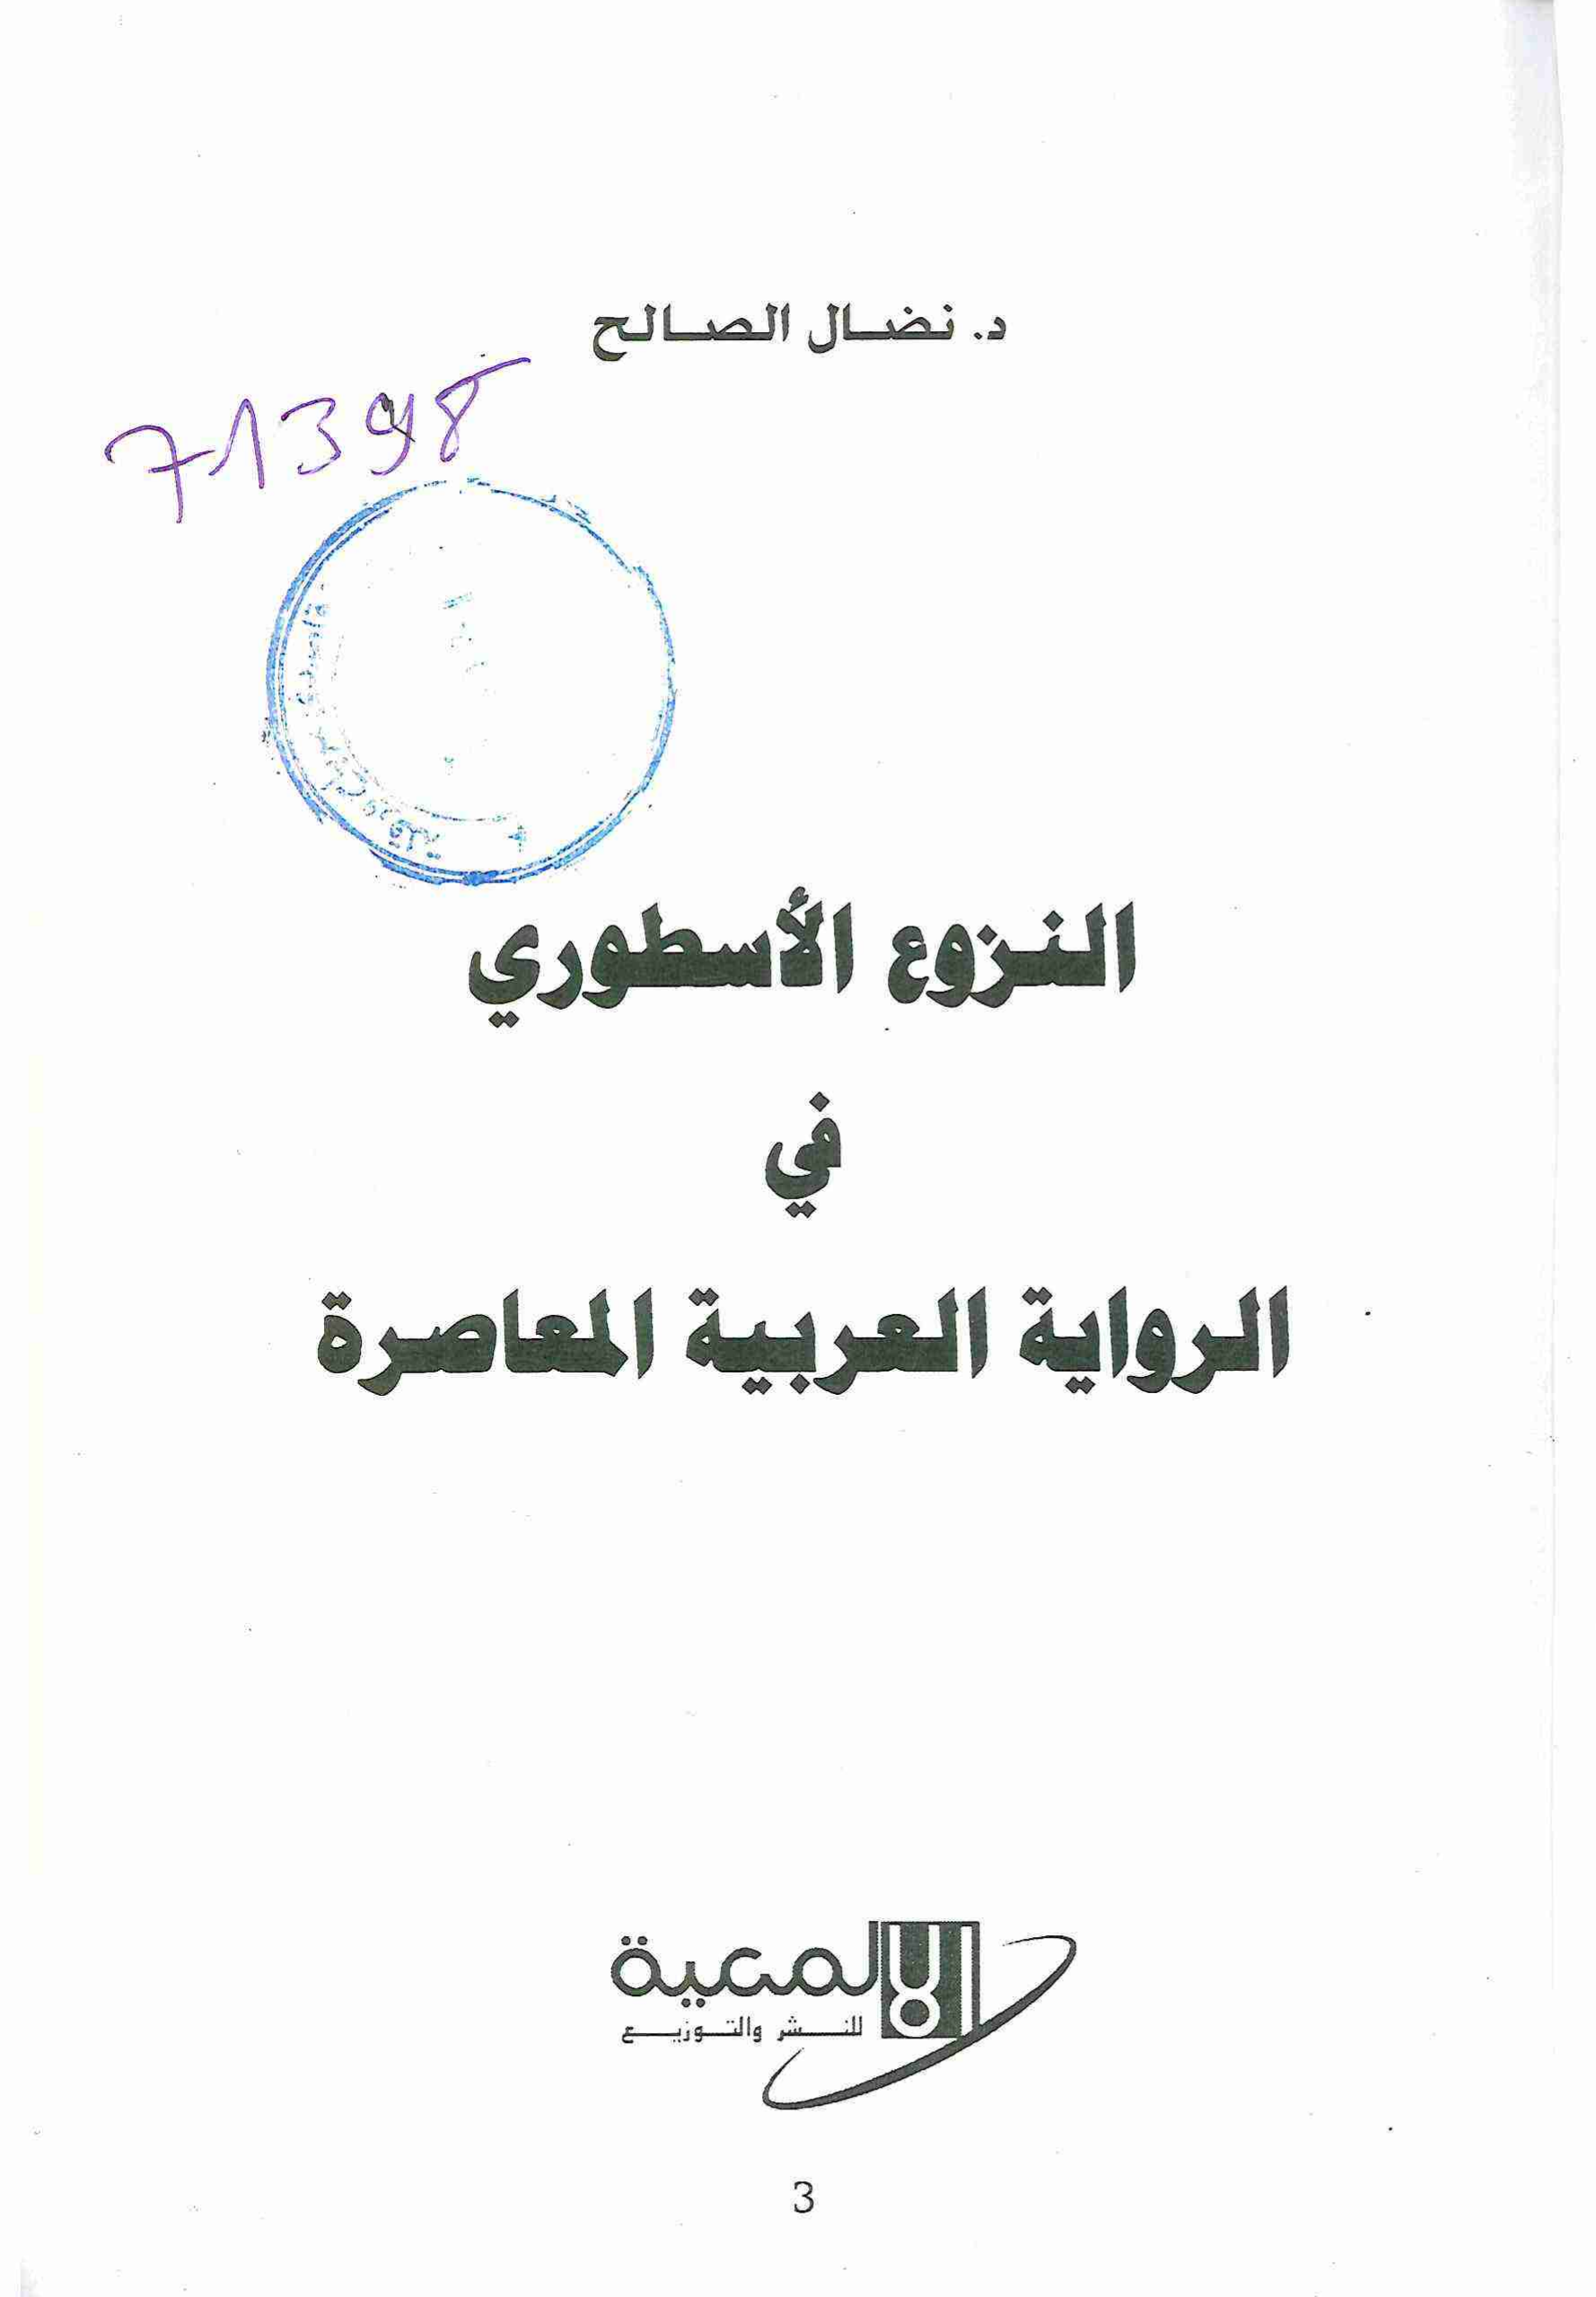 د. نضال الصالح
71398
النزوع الأسطوري
في
الرواية العربية المعاصرة
الألمعية
للنشر والتوزيع
3